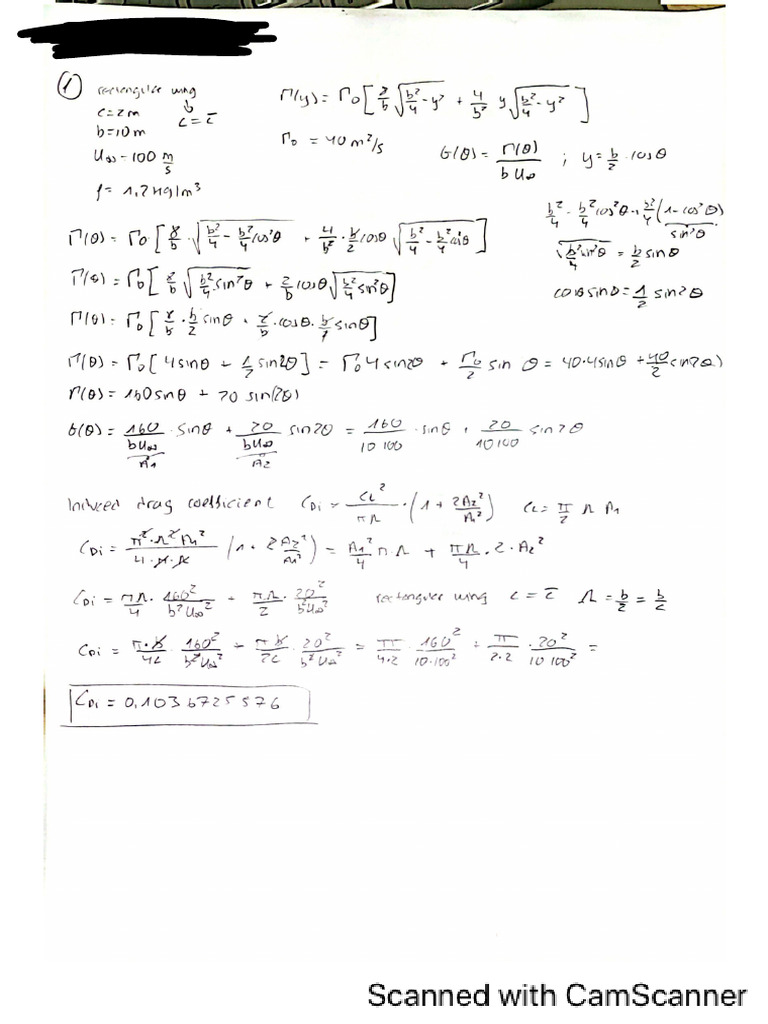 ① rectangular wing
c = 2 m   c = c̄
b = 10 m
U∞ = 100 m/s
ρ = 1,2 kg/m³
Γ(y) = Γ₀ [ 8/b √(b²/4 - y²) + 4/b² y √(b²/4 - y²) ]
Γ₀ = 40 m²/s
G(θ) = Γ(θ)/(b U∞) ; y = b/2 · cosθ
b²/4 - b²/4 cos²θ = b²/4 (1 - cos²θ)
sin²θ
√(b²/4 sin²θ) = b/2 sinθ
cosθ sinθ = 1/2 sin2θ
Γ(θ) = Γ₀ [ 8/b · √(b²/4 - b²/4 cos²θ) + 4/b² · b/2 cosθ √(b²/4 - b²/4 cos²θ) ]
Γ(θ) = Γ₀ [ 8/b √(b²/4 · sin²θ) + 2/b cosθ √(b²/4 sin²θ) ]
Γ(θ) = Γ₀ [ 8/b · b/2 sinθ + 2/b · cosθ · b/2 sinθ ]
Γ(θ) = Γ₀ [ 4 sinθ + 1/2 sin2θ ] = Γ₀ 4 sin2θ + Γ₀/2 sin θ = 40·4 sinθ + 40/2 sin(2θ)
Γ(θ) = 160 sinθ + 20 sin(2θ)
G(θ) = 160/(b U∞) · sinθ + 20/(b U∞) sin2θ = 160/(10 100) · sinθ + 20/(10 100) sin2θ
A₁   A₂
Induced drag coefficient   C_Di = C_L²/(πΛ) · (1 + 2A₂²/A₁²)   C_L = π/2 Λ A₁
C_Di = π²·Λ²A₁²/(4·π·Λ) (1 + 2A₂²/A₁²) = A₁²/4 πΛ + πΛ/4 · 2·A₂²
C_Di = πΛ/4 · 160²/(b²U∞²) + πΛ/2 · 20²/(b²U∞²)   rectangular wing   c = c̄   Λ = b/c̄ = b/c
C_Di = π·b/4c · 160²/(b²U∞²) + πb/2c · 20²/(b²U∞²) = π/(4·2) · 160²/(10·100²) + π/(2·2) · 20²/(10 100²) =
C_Di = 0,1036725576
Scanned with CamScanner